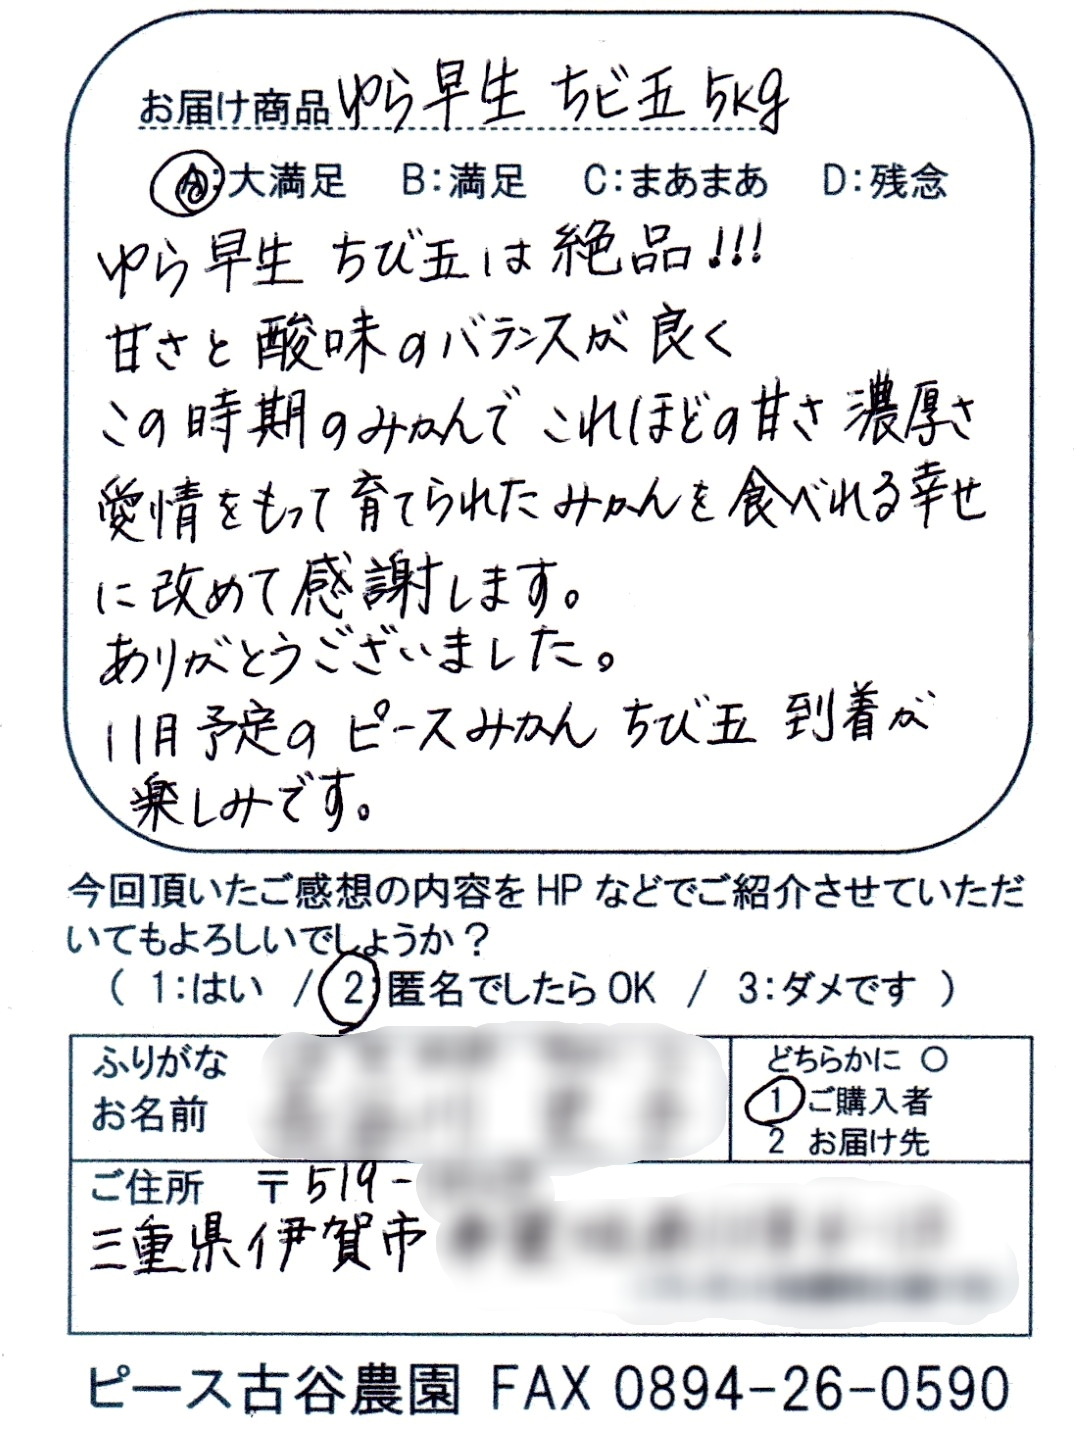 お届け商品 ゆら早生 ちビ玉 5kg
A:大満足 B:満足 C:まあまあ D:残念
ゆら早生 ちび玉は絶品!!!
甘さと酸味のバランスが良く
この時期のみかんでこれほどの甘さ濃厚さ
愛情をもって育てられたみかんを食べれる幸せ
に改めて感謝します。
ありがとうございました。
11月予定のピースみかん ちび玉 到着が
楽しみです。
今回頂いたご感想の内容をHPなどでご紹介させていただ
いてもよろしいでしょうか?
( 1:はい / 2:匿名でしたらOK / 3:ダメです )
ふりがな
お名前
どちらかに ○
1 ご購入者
2 お届け先
ご住所 〒519-
三重県伊賀市
ピース古谷農園 FAX 0894-26-0590